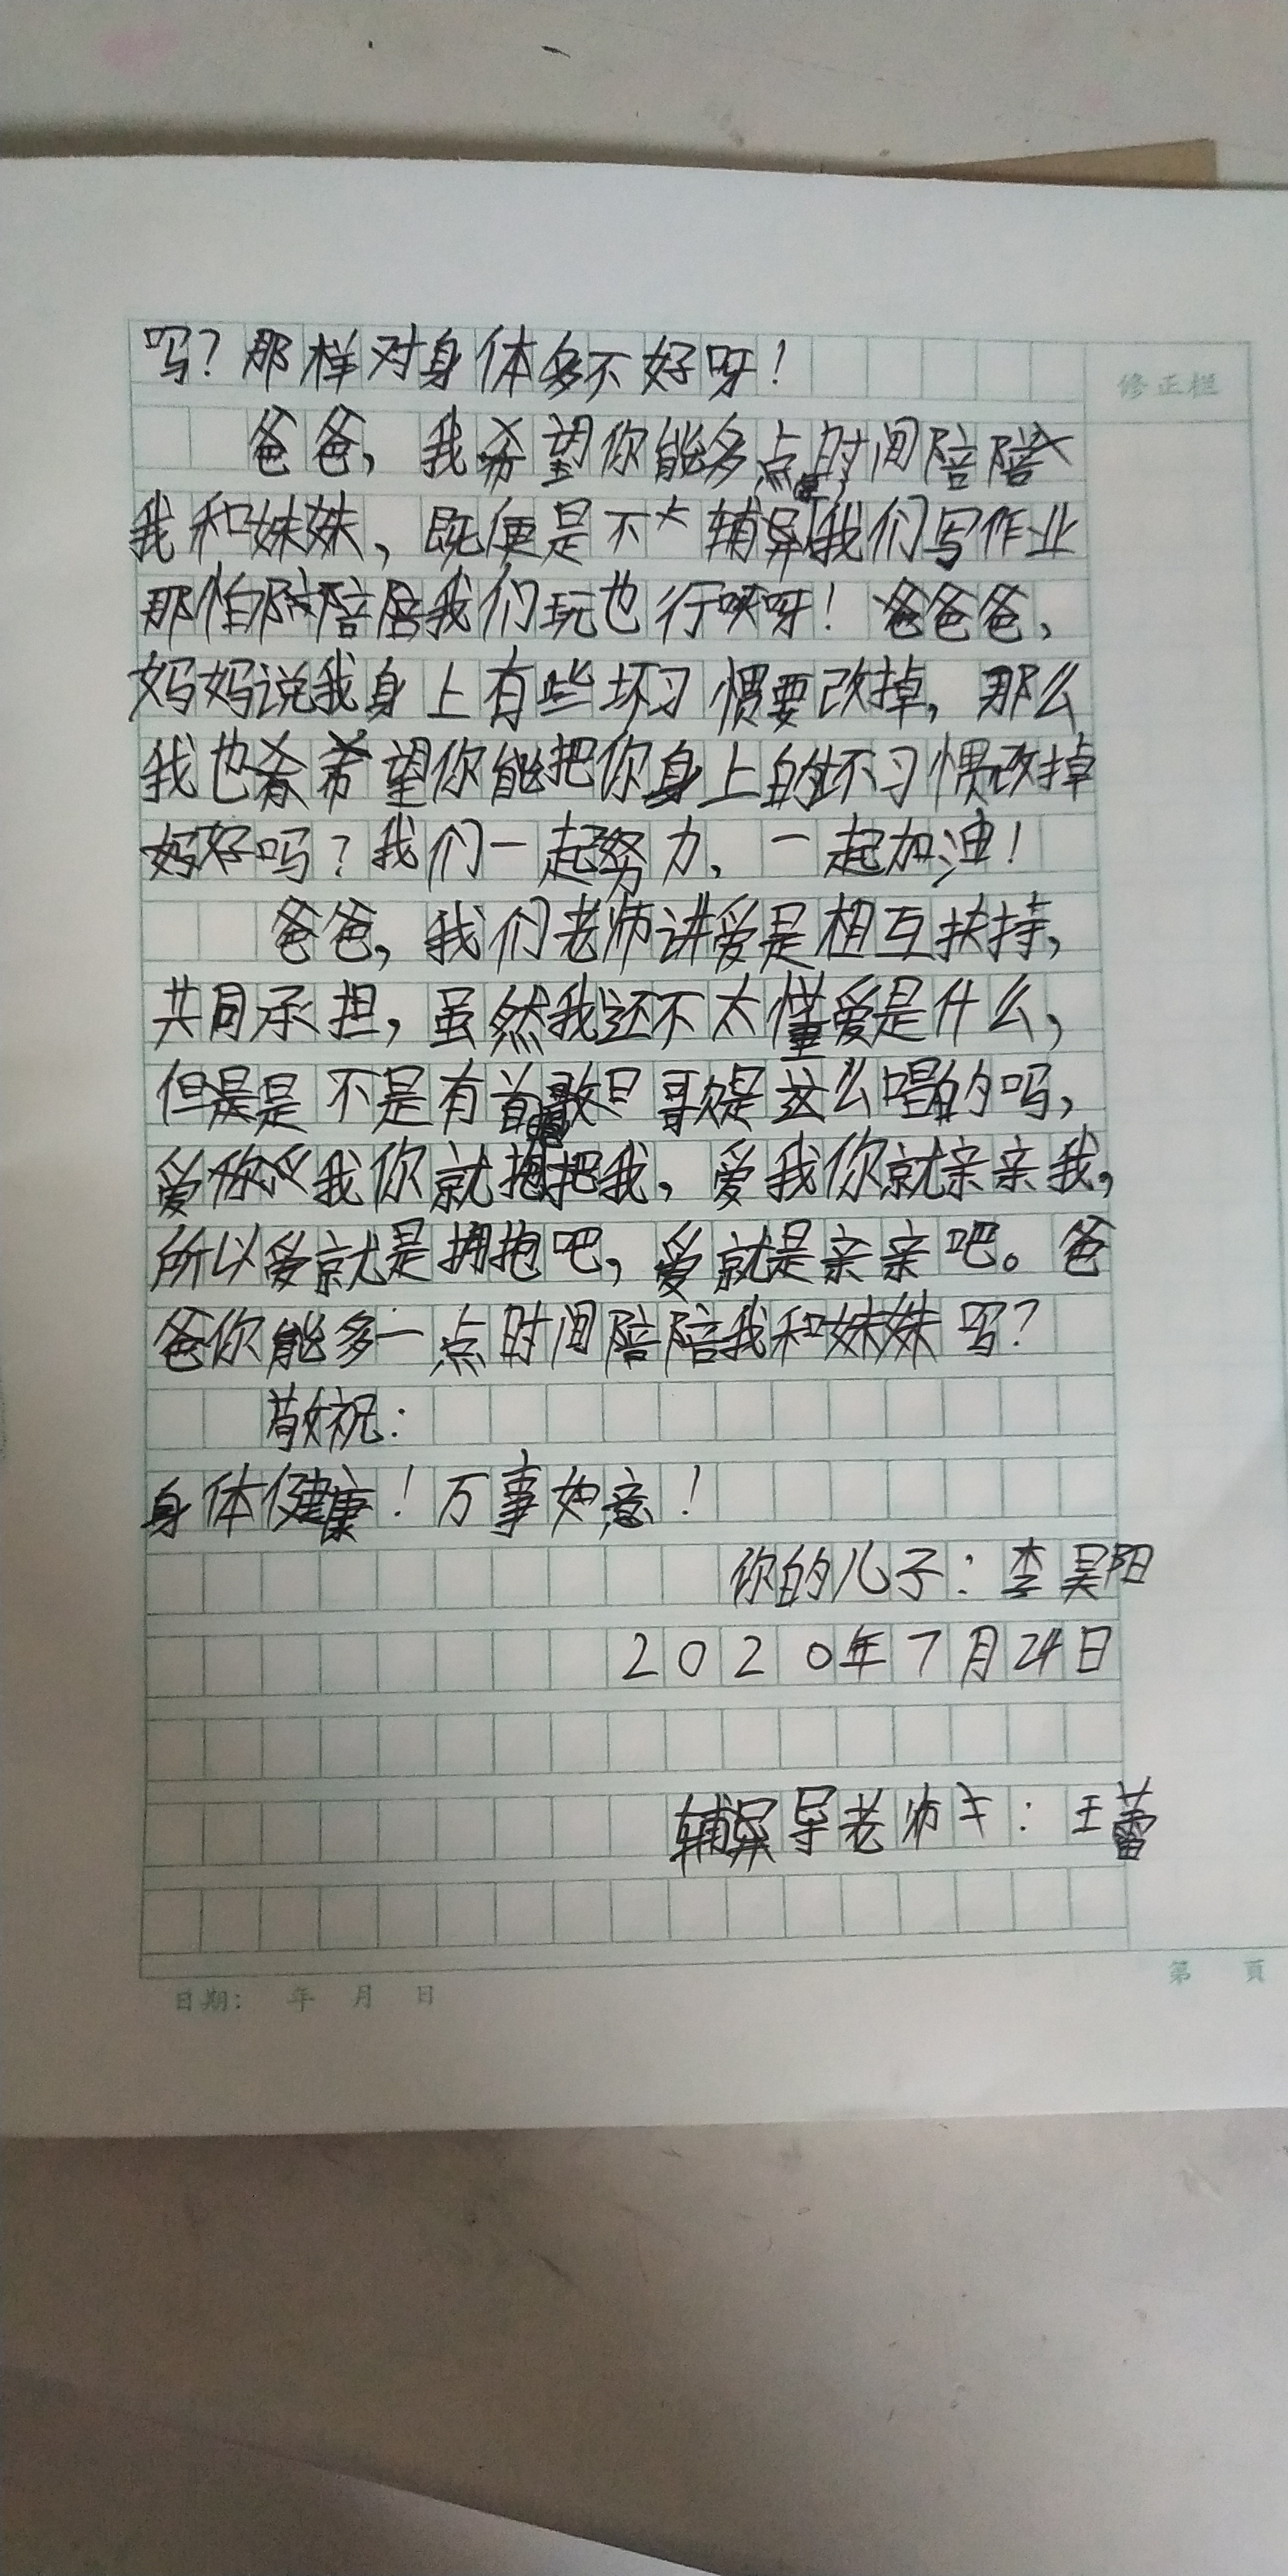 吗？那样对身体多不好呀！
修正栏
爸爸，我希望你能多点时间陪陪
我和妹妹，既便是不辅导我们写作业
那怕陪陪我们玩也行呀！爸爸，
妈妈说我身上有些坏习惯要改掉，那么
我也希望你能把你身上的坏习惯改掉
好吗？我们一起努力，一起加油！
爸爸，我们老师讲爱是相互扶持，
共同承担，虽然我还不太懂爱是什么，
但是是不是有首歌是这么唱的吗，
爱我你就抱抱我，爱我你就亲亲我，
所以爱就是拥抱吧，爱就是亲亲吧。爸
爸你能多一点时间陪陪我和妹妹吗？
敬祝：
身体健康！万事如意！
你的儿子：李昊阳
2020年7月24日
辅导老师：王蕾
日期： 年 月 日
第 頁